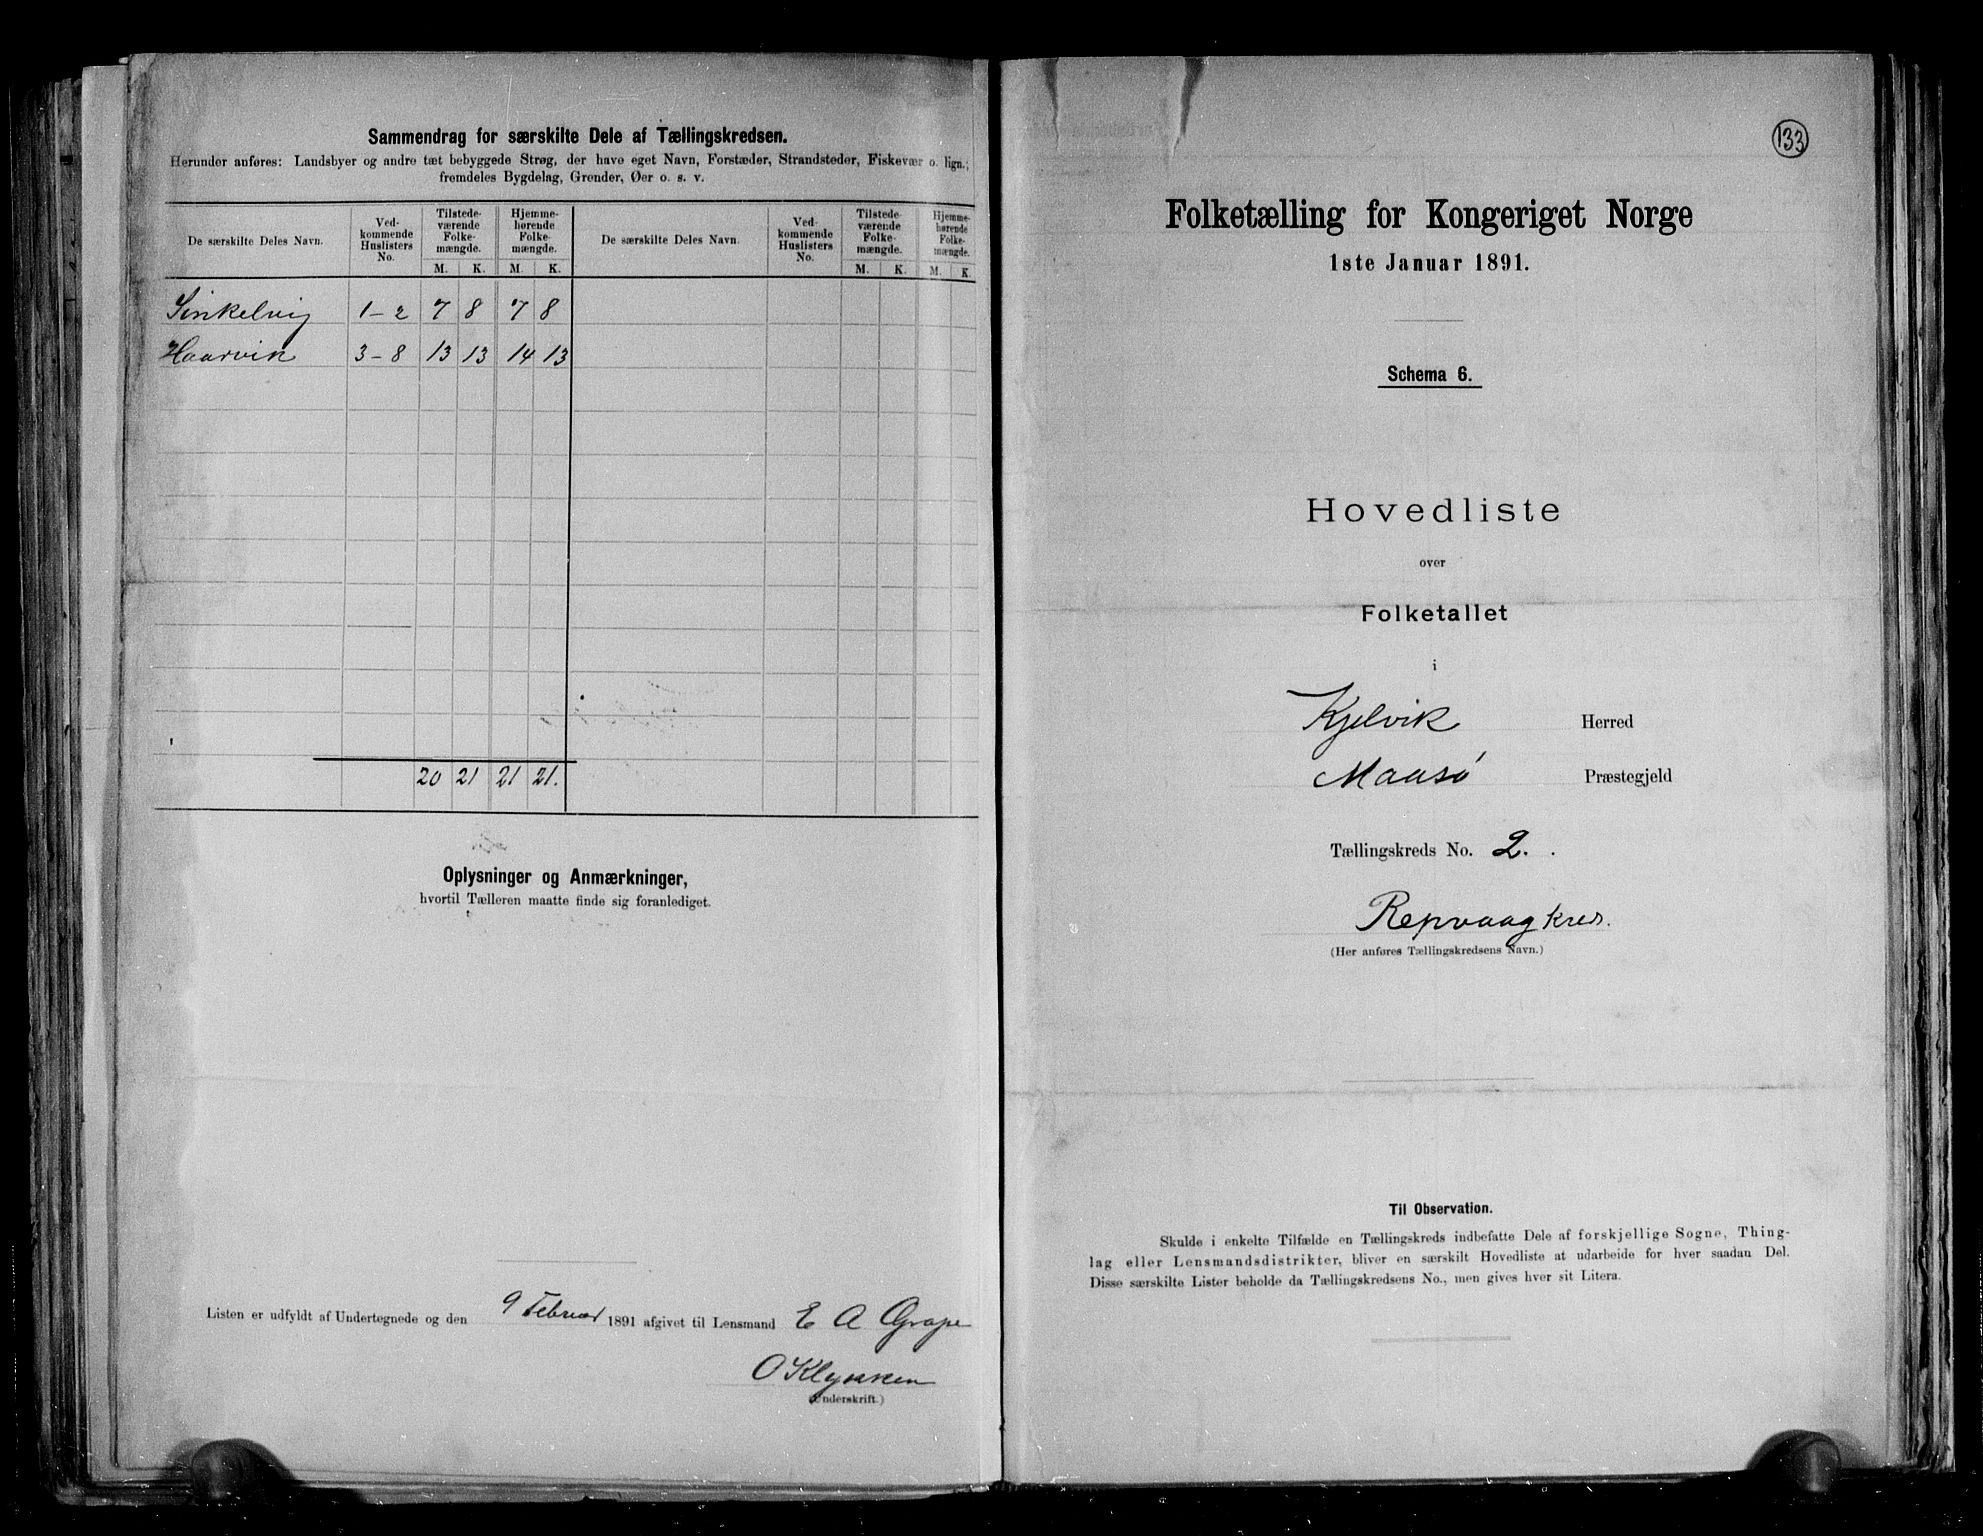 Sammendrag for særskilte Dele af Tællingskredsen.
Herunder anføres: Landsbyer og andre tæt bebyggede Strøg, der have eget Navn, Forstæder, Strandsteder, Fiskevær o. lign.;
fremdeles Bygdelag, Grender, Øer o. s. v.
De særskilte Deles Navn. Ved-kommende Huslisters No. Tilstede-værende Folke-mængde. Hjemme-hørende Folke-mængde. De særskilte Deles Navn. Ved-kommende Huslisters No. Tilstede-værende Folke-mængde. Hjemme-hørende Folke-mængde.
M. K. M. K. M. K. M. K.
Sinkelvig 1-2 7 8 7 8
Haarvik 3-8 13 13 14 13
20 21 21 21.
Oplysninger og Anmærkninger,
hvortil Tælleren maatte finde sig foranlediget.
Listen er udfyldt af Undertegnede og den 9 Februar 1891 afgivet til Lensmand E A Grape
O Klykken
(Underskrift.)
133
Folketælling for Kongeriget Norge
1ste Januar 1891.
Schema 6.
Hovedliste
over
Folketallet
i
Kjelvik Herred
Maasø Præstegjeld
Tællingskreds No. 2.
Repvaag kreds.
(Her anføres Tællingskredsens Navn.)
Til Observation.
Skulde i enkelte Tilfælde en Tællingskreds indbefatte Dele af forskjellige Sogne, Thing-
lag eller Lensmandsdistrikter, bliver en særskilt Hovedliste at udarbeide for hver saadan Del.
Disse særskilte Lister beholde da Tællingskredsens No., men gives hver sit Litera.